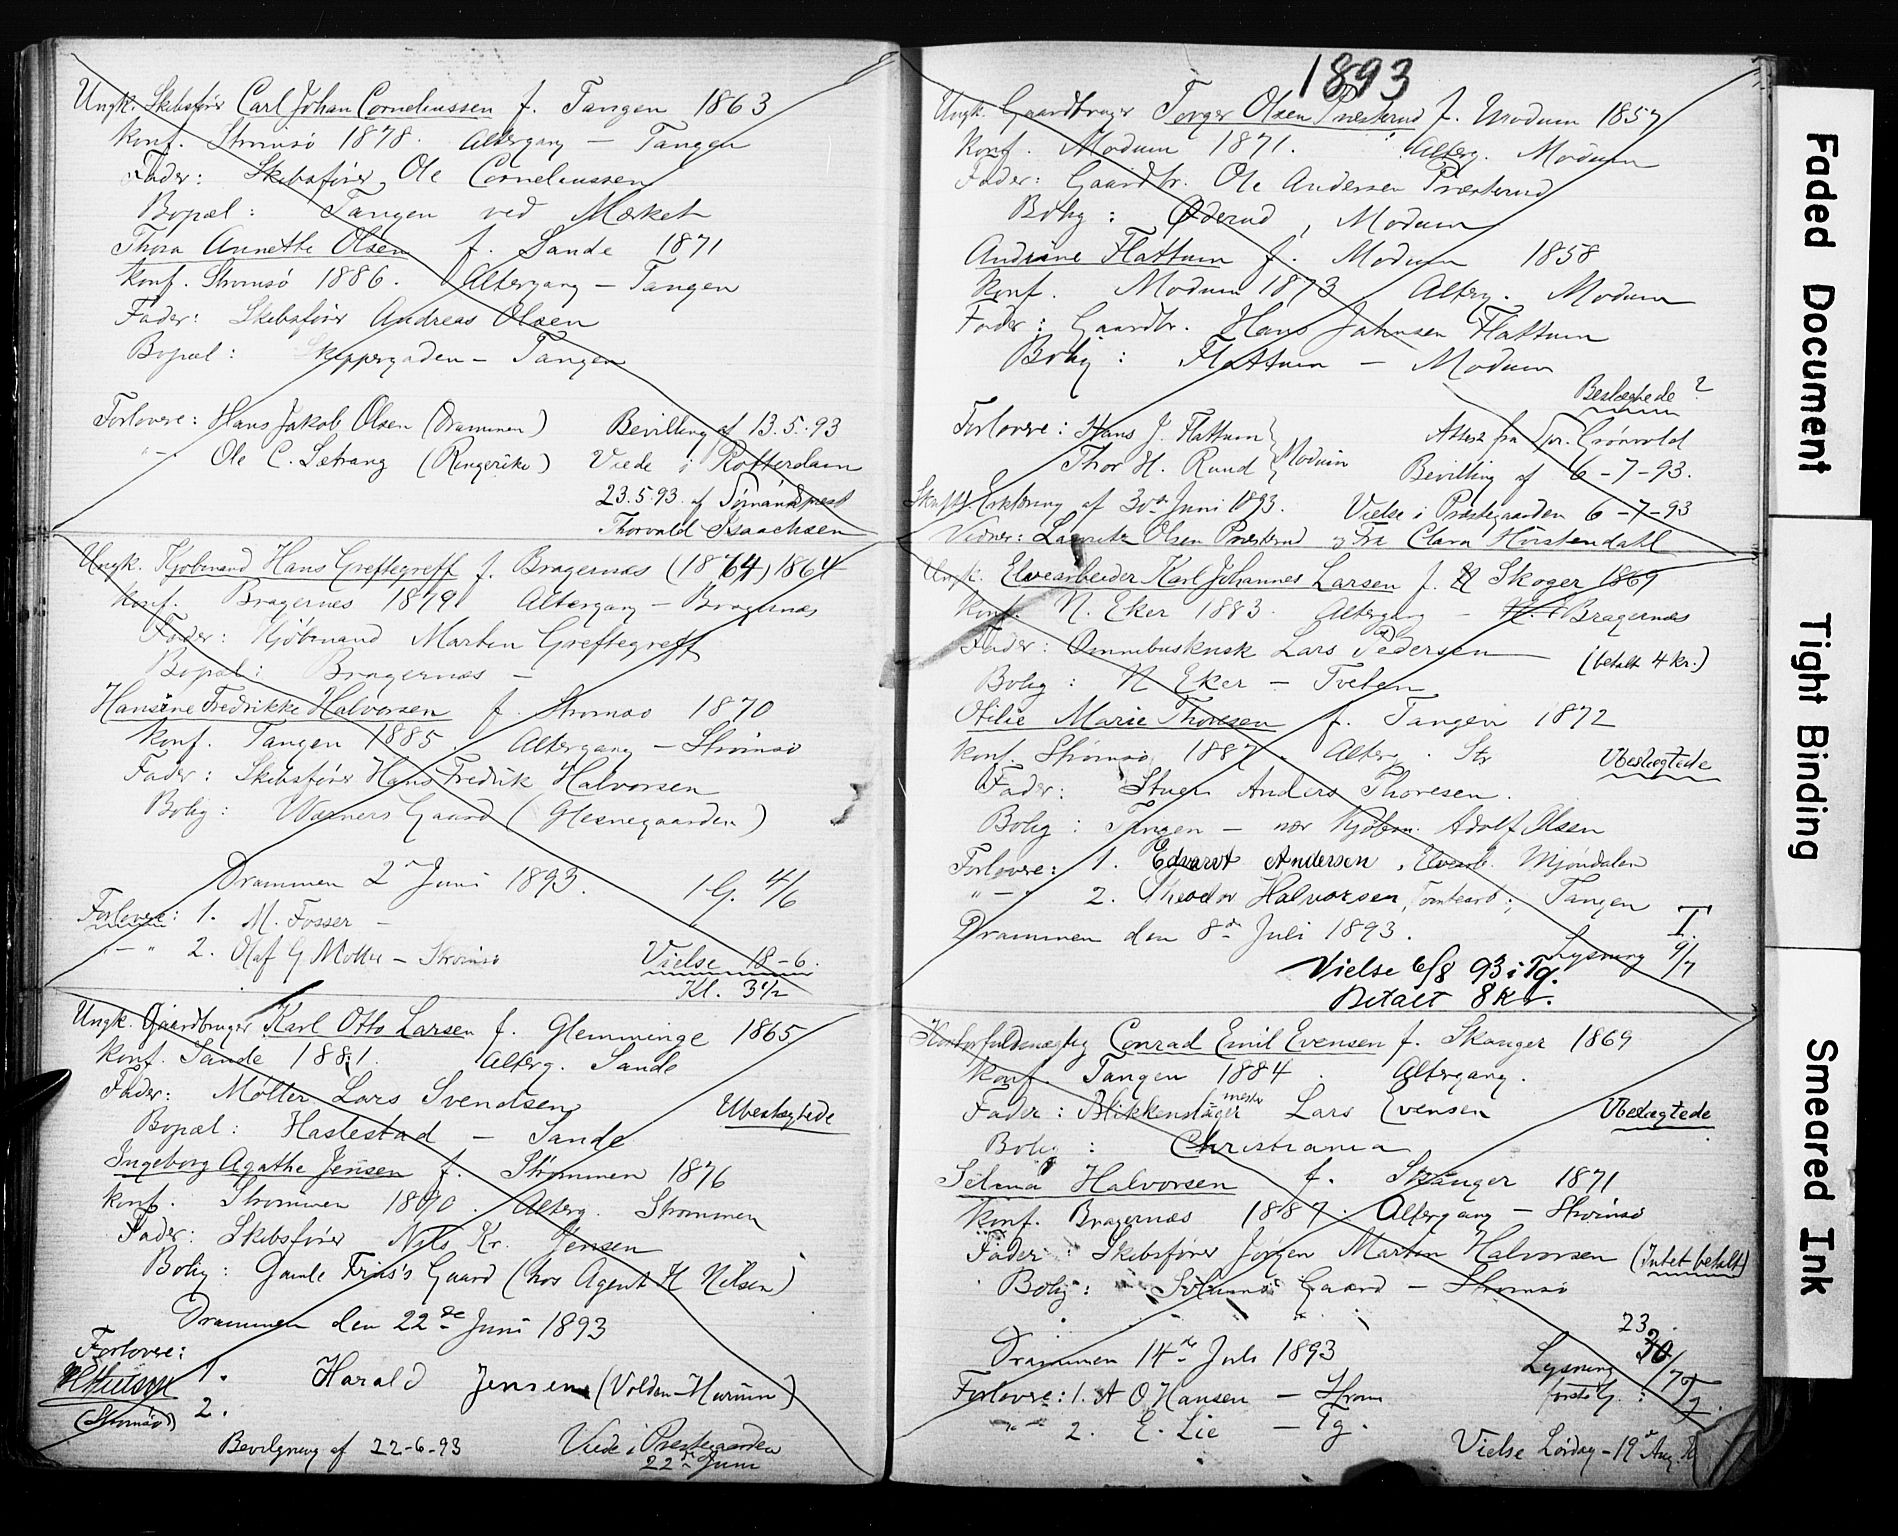 Ungk. Skibsfører Carl Johan Corneliussen f. Tangen 1863
Konf. Strømsø 1878. Altergang — Tangen
Fader: Skibsfører Ole Corneliussen
Bopæl: Tangen ved Mærket
Thora Annette Olsen f. Sande 1871
Konf. Strømsø 1886. Altergang — Tangen
Fader: Skibsfører Andreas Olsen
Bopæl: Skippergaden — Tangen
Forlovere: Hans Jakob Olsen (Drammen)
Ole C. Setrang (Ringerike)
Bevilling af 13.5.93
Viede i Rotterdam
23.5.93. af Sømandspræst
Thorvald Isaachsen
Ungk. Kjøbmand Hans Greftegreff f. Bragernæs (1864) 1864
Konf. Bragernæs 1879 Altergang — Bragernæs
Fader: Kjøbmand Morten Greftegreff
Bopæl: Bragernæs —
Hansine Fredrikke Halvorsen f. Strømsø 1870
Konf. Tangen 1885. Altergang — Strømsø
Fader: Skibsfører Hans Fredrik Halvorsen
Bolig: Warners Gaard (Glesnegaarden)
Drammen 2n Juni 1893. 1 G. 4/6
Forlovere: 1. M. Fosser —
2. Olaf G Møller — Strømsø
Vielse 18-6.
Kl. 3 1/2
Ungk. Gaardbruger Karl Otto Larsen f. Glemminge 1865
Konf. Sande 1881. Alterg. Sande
Fader: Møller Lars Svendsen
Ubeslægtede
Bopæl: Haslestad — Sande
Ingeborg Agathe Jensen f. Strømmen 1876
Konf. Strømmen 1890. Alterg. Strømmen
Fader: Skibsfører Nils Kr. Jensen
Bolig: Gamle Friis's Gaard (hos Agent H Nilsen)
Drammen den 22de Juni 1893
Forlovere:
1. Harald Jensen (Volden-Hurum)
(Strømsø) 2.
Bevilgning af 22-6-93
Viede i Præstegaarden
22de Juni
1893
Ungk. Gaardbruger Torger Olsen Præsterud f. Modum 1857
Konf. Modum 1871. Alterg. Modum
Fader: Gaardbr. Ole Andersen Præsterud
Bolig: Øderud, Modum
Andrine Flattum f. Modum 1858
Konf. Modum 1873 Alterg. Modum
Fader: Gaardbr. Hans Jahnsen Flattum
Bolig: Flattum — Modum
Beslægtede?
Forlovere: Hans J. Flattum
Thor H. Rund } Modum
Attest fra Spr. Grønvold
Bevilling af 6-7-93.
Skriftl Erklæring af 30te Juni 1893.
Vielse i Præstegaarden 6-7-93
Vidner: Lauritz Olsen Præsterud og Frk Clara Hvistendahl
Ungk. Elvearbeider Karl Johannes Larsen f. Skoger 1869
Konf. N. Eker 1883. Altergang — Bragernæs
Fader: Omnibuskusk Lars Pedersen
(betalt 4 Kr.)
Bolig: N Eker — Tveten
Otilie Marie Thoresen f. Tangen 1872
Konf. Strømsø 1887. Alterg. Str
Ubeslægtede
Fader: Stuer Anders Thoresen.
Bolig: Tangen — nær Kjøbm. Adolf Olsen
Forlovere: 1. Edvart Andersen, Elvearb. Mjøndalen
2. Theodor Halvorsen, Tomtearb; Tangen
Drammen den 8de Juli 1893.
I.
Lysning 9/7
Vielse 6/8 93 i Tg.
Betalt 8 Kr.
Conrad Emil Evensen f. Skouger 1869
Konf. Tangen 1884. Altergang.
Fader: Blikkenslagermester Lars Evensen
Ubeslægtede
Bolig: Christiania
Selma Halvorsen f. Skouger 1871
Konf. Bragernæs 1887. Altergang — Strømsø
Fader: Skibsfører Jørgen Martin Halvorsen (Intet betalt)
Bolig: Solums Gaard — Strømsø
Drammen 14de Juli 1893
23
Lysning 30/7
første G.: I.
Forlovere: 1. A O Hansen — Strøm
2. E. Lie — Tg.
Vielse Lørdag — 19de Aug.
Faded Document
Tight Binding
Smeared Ink